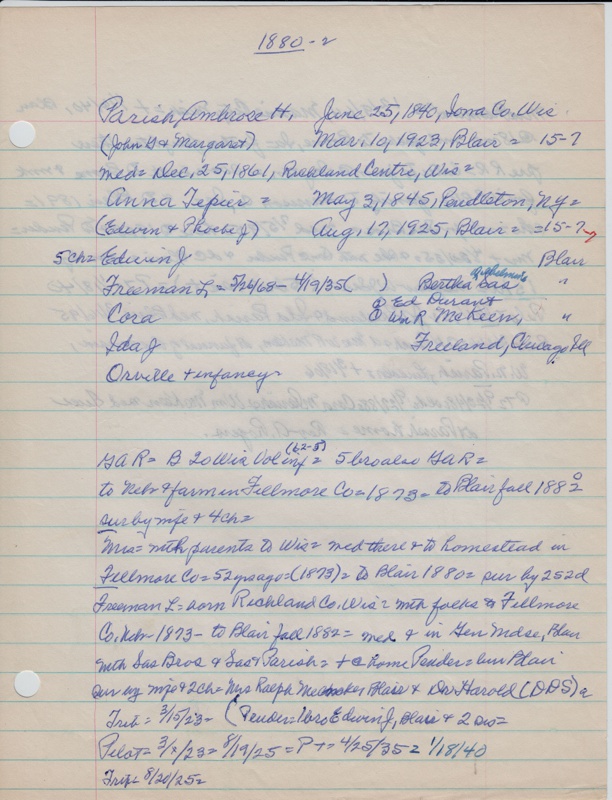 1880-2
Parish, Ambrose H. June 25, 1840, Iona Co. Wis
(John G & Margaret) Mar. 10, 1923, Blair = 15-7
med = Dec. 25, 1861, Richland Centre, Wis =
Anna Tepier = May 3, 1845, Pendleton, NY =
(Edwin & Phoebe J) Aug. 17, 1925, Blair = =15-7
5 ch = Edwin J Blair
Freeman L = 5/24/68 - 4/19/35 ( ) Bertha Wilhelmina Sas "
Cora Ed Durant
Wm R McKeen, "
Ida J Freeland, Chicago, Ill
Orville + infancy =
GAR = B 20 Wis Vol inf (62-5) = 5 bro also GAR =
to Neb & farm in Fillmore Co = 1873 = to Blair fall 1882
sur by wife & 4 ch =
Mrs = with parents to Wis = med there & to homestead in
Fillmore Co = 52 yrs ago = (1873) = to Blair 1880 = sur by 2s 2d
Freeman L = born Richland Co. Wis = with folks to Fillmore
Co. Neb - 1873 - to Blair fall 1882 = med & in Gen Mdse, Blair
with Sas Bros & Sas & Parish = + @ home Pender = bur Blair
sur by wife & 2 ch = Mrs Ralph Blair & Dr. Harold (DDS) @
Trib = 3/15/23 = (Pender = bro Edwin J, Blair & 2 sis =
Pilot = 3/ /23 = 8/19/25 = P + = 4/25/35 = 1/18/40
Trib = 8/20/25 =